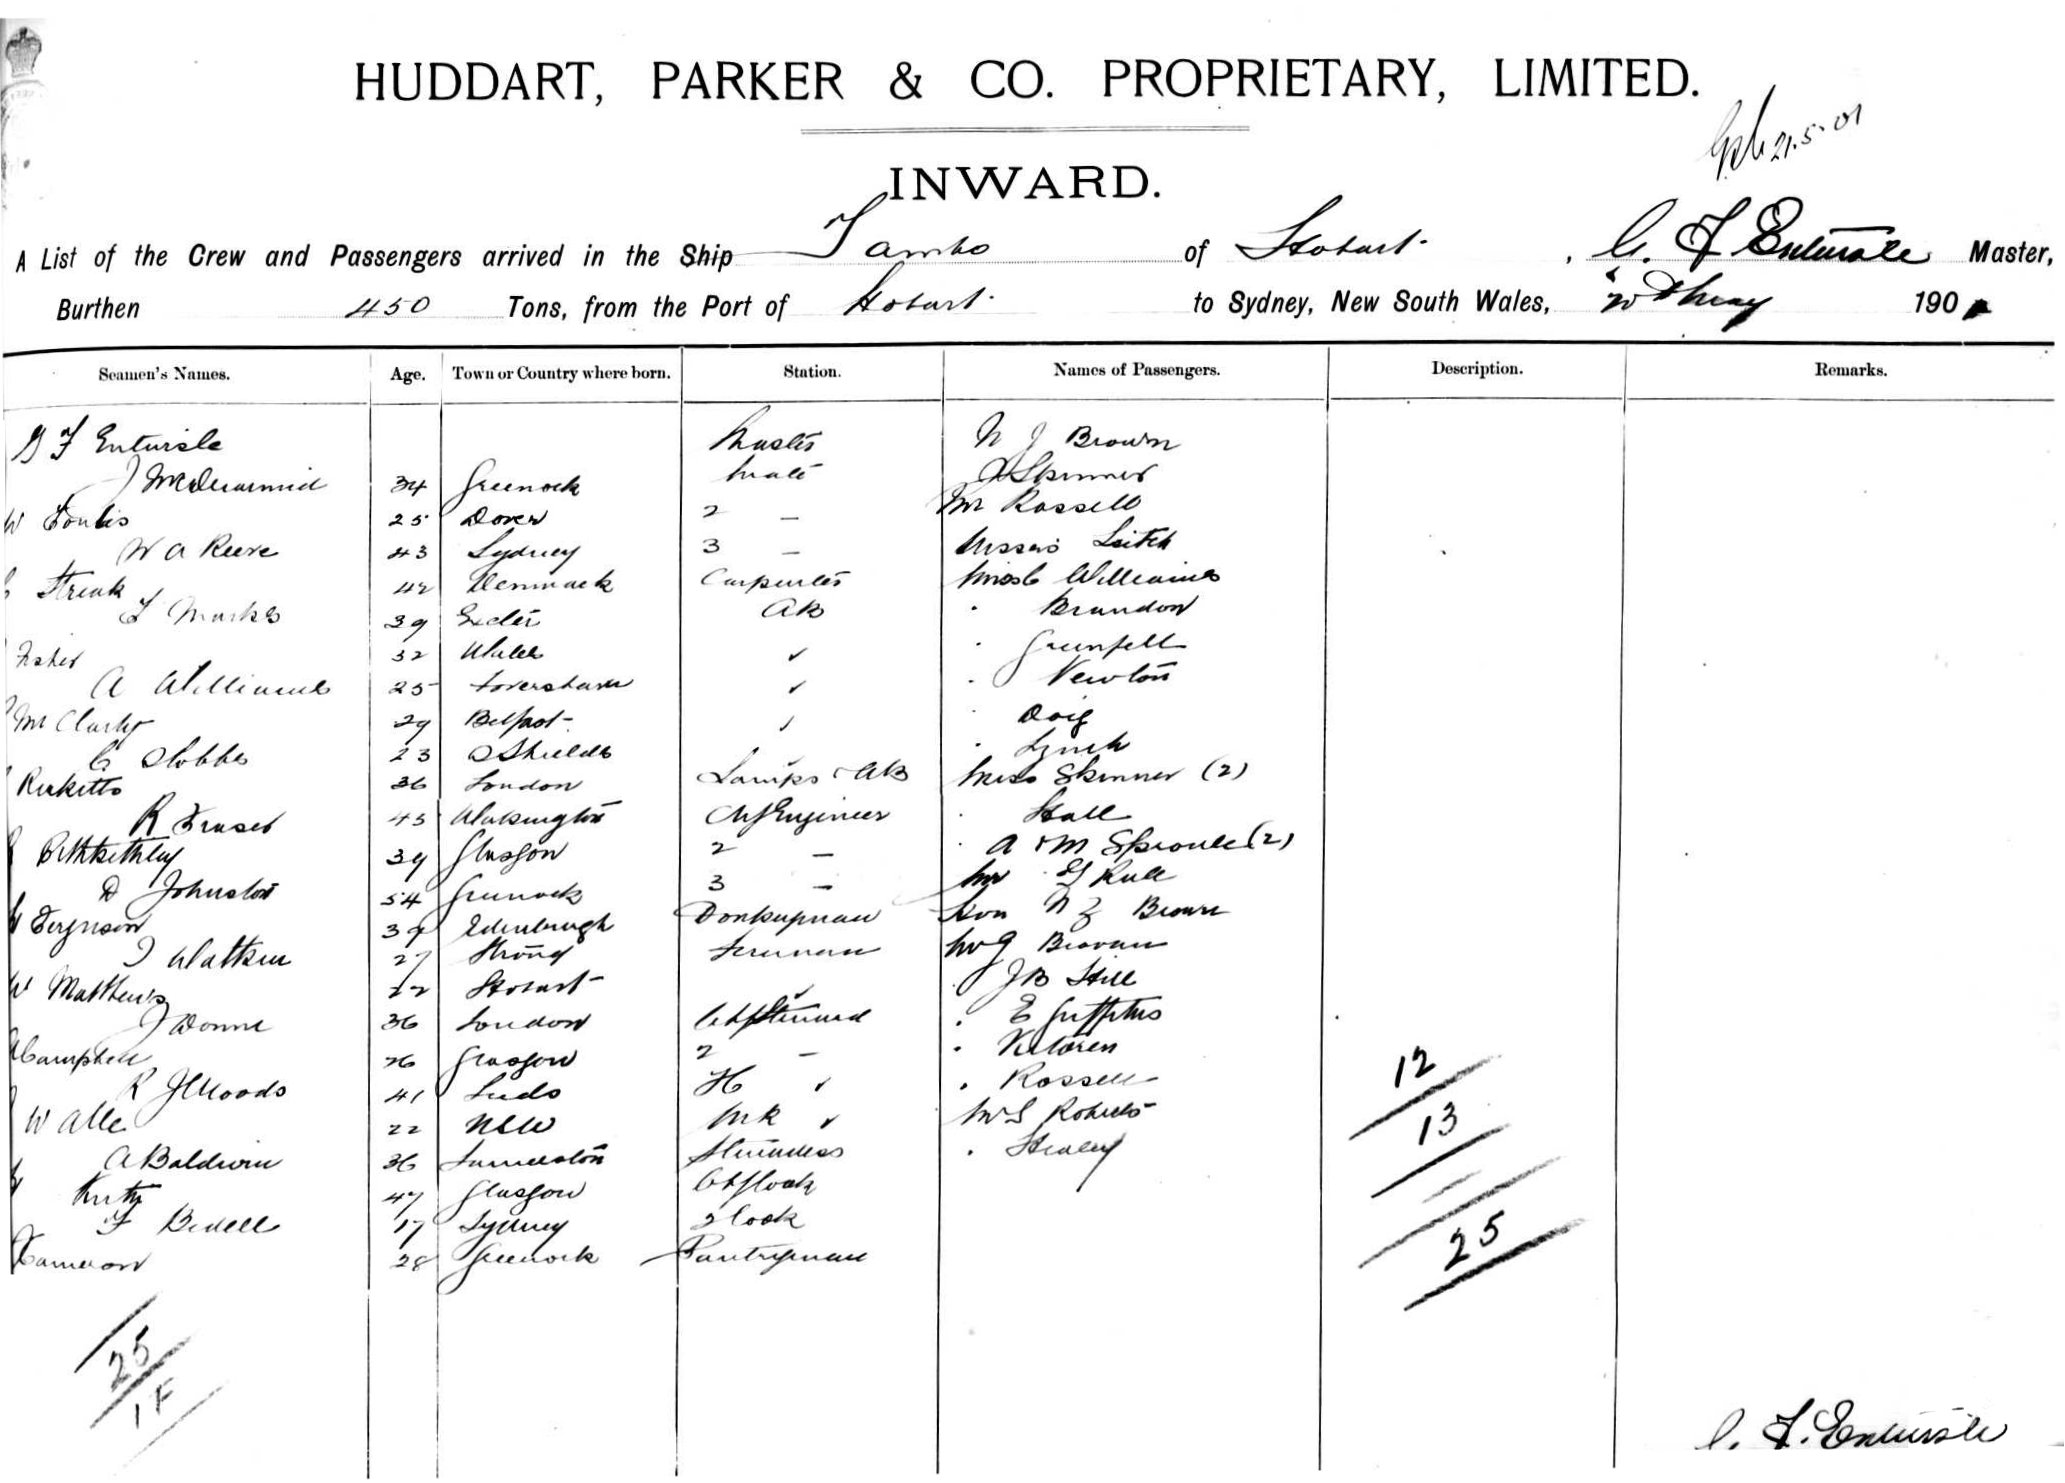 HUDDART, PARKER & CO. PROPRIETARY, LIMITED.
21.5.01
INWARD.
A List of the Crew and Passengers arrived in the Ship Tambo of Hobart, G. F Entwisle Master,
Burthen 450 Tons, from the Port of Hobart to Sydney, New South Wales, May 190
Seamen's Names. Age. Town or Country where born. Station. Names of Passengers. Description. Remarks.
G F Entwisle Master N J Brown
J McDearmid 34 Greenock Mate Skinner
W Foulis 25 Dover 2 — Mr Rossell
W A Reeve 43 Sydney 3 — Leitch
Streak 42 Denmark Carpenter Williams
F Marks 39 Exeter AB " Brandon
Fisher 32 Wales ✓ " Grenfell
A Williams 25 Faversham ✓ " Newton
McClarty 29 Belfast ✓ " Doig
C Stobbs 23 S Shields ✓ " Lynch
Ricketts 36 London Lamps & AB Miss Skinner (2)
R Fraser 45 Workington Chf Engineer " Hall
Pitkethley 39 Glasgow 2 — " A & M Sproule (2)
D Johnston 54 Greenock 3 — Mr Rule
W Ferguson 39 Edinburgh Donkeyman Hon N J Brown
J Watkin 27 Stroud Fireman Mr G Bravan
W Matthews 22 Hobart ✓ " J B Hill
J Donne 36 London Chf Steward " E Griffiths
Campbell 26 Glasgow 2 —
R J Woods 41 Leeds ✓ " Rossell
W Alle 22 NSW ✓ Mr S Roberts
A Baldwin 36 Launceston Stewardess " Healey
47 Glasgow Chf Cook
F Bedell 17 Sydney 2 Cook
Cameron 28 Greenock Pantryman
12
13
25
25
1F
G. F. Entwisle